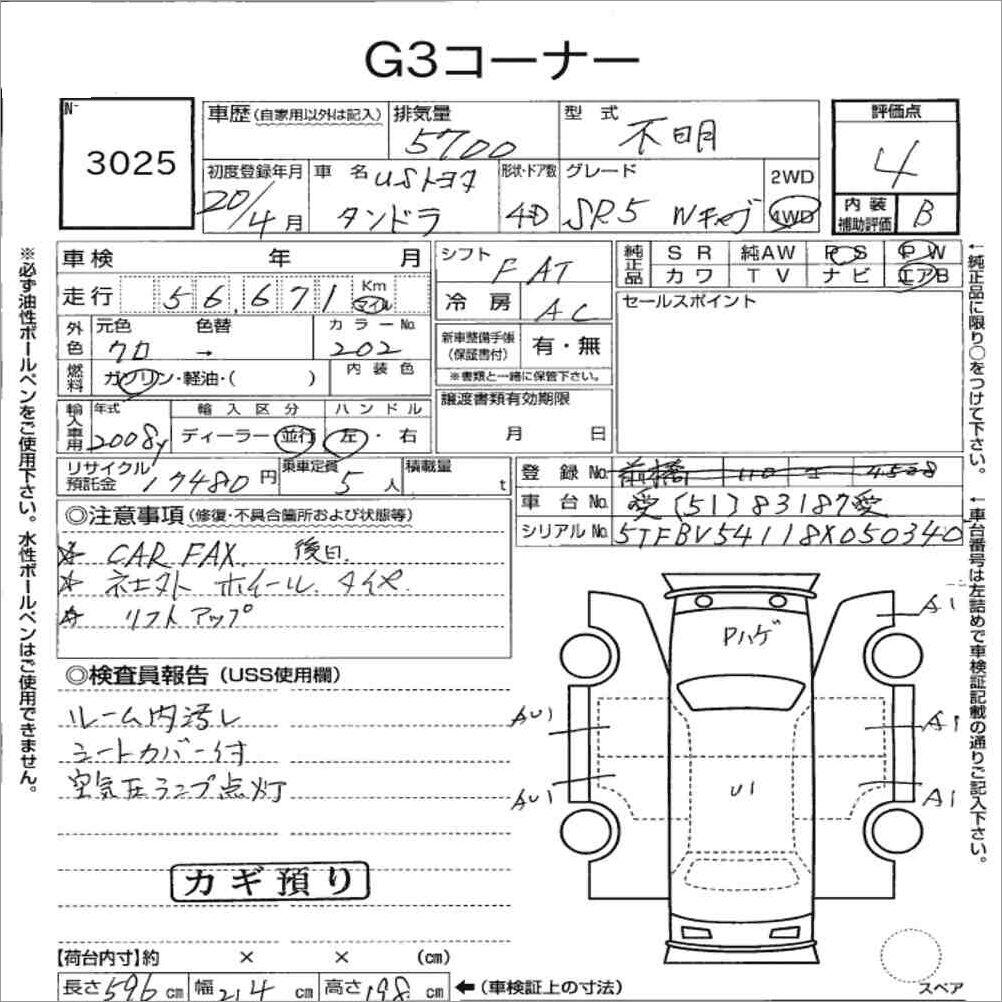 G3コーナー
No
3025
車歴 (自家用以外は記入)
排気量 5700
型式 不明
評価点
4
内装補助評価 B
初度登録年月 20/4月
車名 USトヨタ タンドラ
形状・ドア数 4D
グレード SR5 Wキャブ
2WD
4WD
車検 年 月
走行 56,671 Km マイル
外色 元色 クロ 色替 → カラーNo. 202
燃料 ガソリン・軽油・( )
内装色
輸入車用 年式 2008y
輸入区分 ディーラー・並行
ハンドル 左・右
リサイクル預託金 17480円
乗車定員 5人
積載量 t
シフト FAT
冷房 AC
新車整備手帳(保証書付) 有・無
※書類と一緒に保管下さい。
譲渡書類有効期限
月 日
純正品 SR 純AW PS PW
カワ TV ナビ エアB
セールスポイント
登録No. 前橋 110 4528
車台No. 愛(51)83187愛
シリアルNo. 5TFBV54118X050340
◎注意事項 (修復・不具合箇所および状態等)
☆ CAR FAX. 後日.
☆ ホイール タイヤ.
☆ リフトアップ
◎検査員報告 (USS使用欄)
ルーム内汚レ
シートカバー付
空気圧ランプ点灯
カギ預り
Pハゲ
A1
AU1
A1
U1
AU1
A1
スペア
【荷台内寸】約 × × (cm)
長さ 596 cm 幅 214 cm 高さ 198 cm ←(車検証上の寸法)
※必ず油性ボールペンをご使用下さい。水性ボールペンはご使用できません。
←純正品に限り○をつけて下さい。
←車台番号は左詰めで車検証記載の通りご記入下さい。